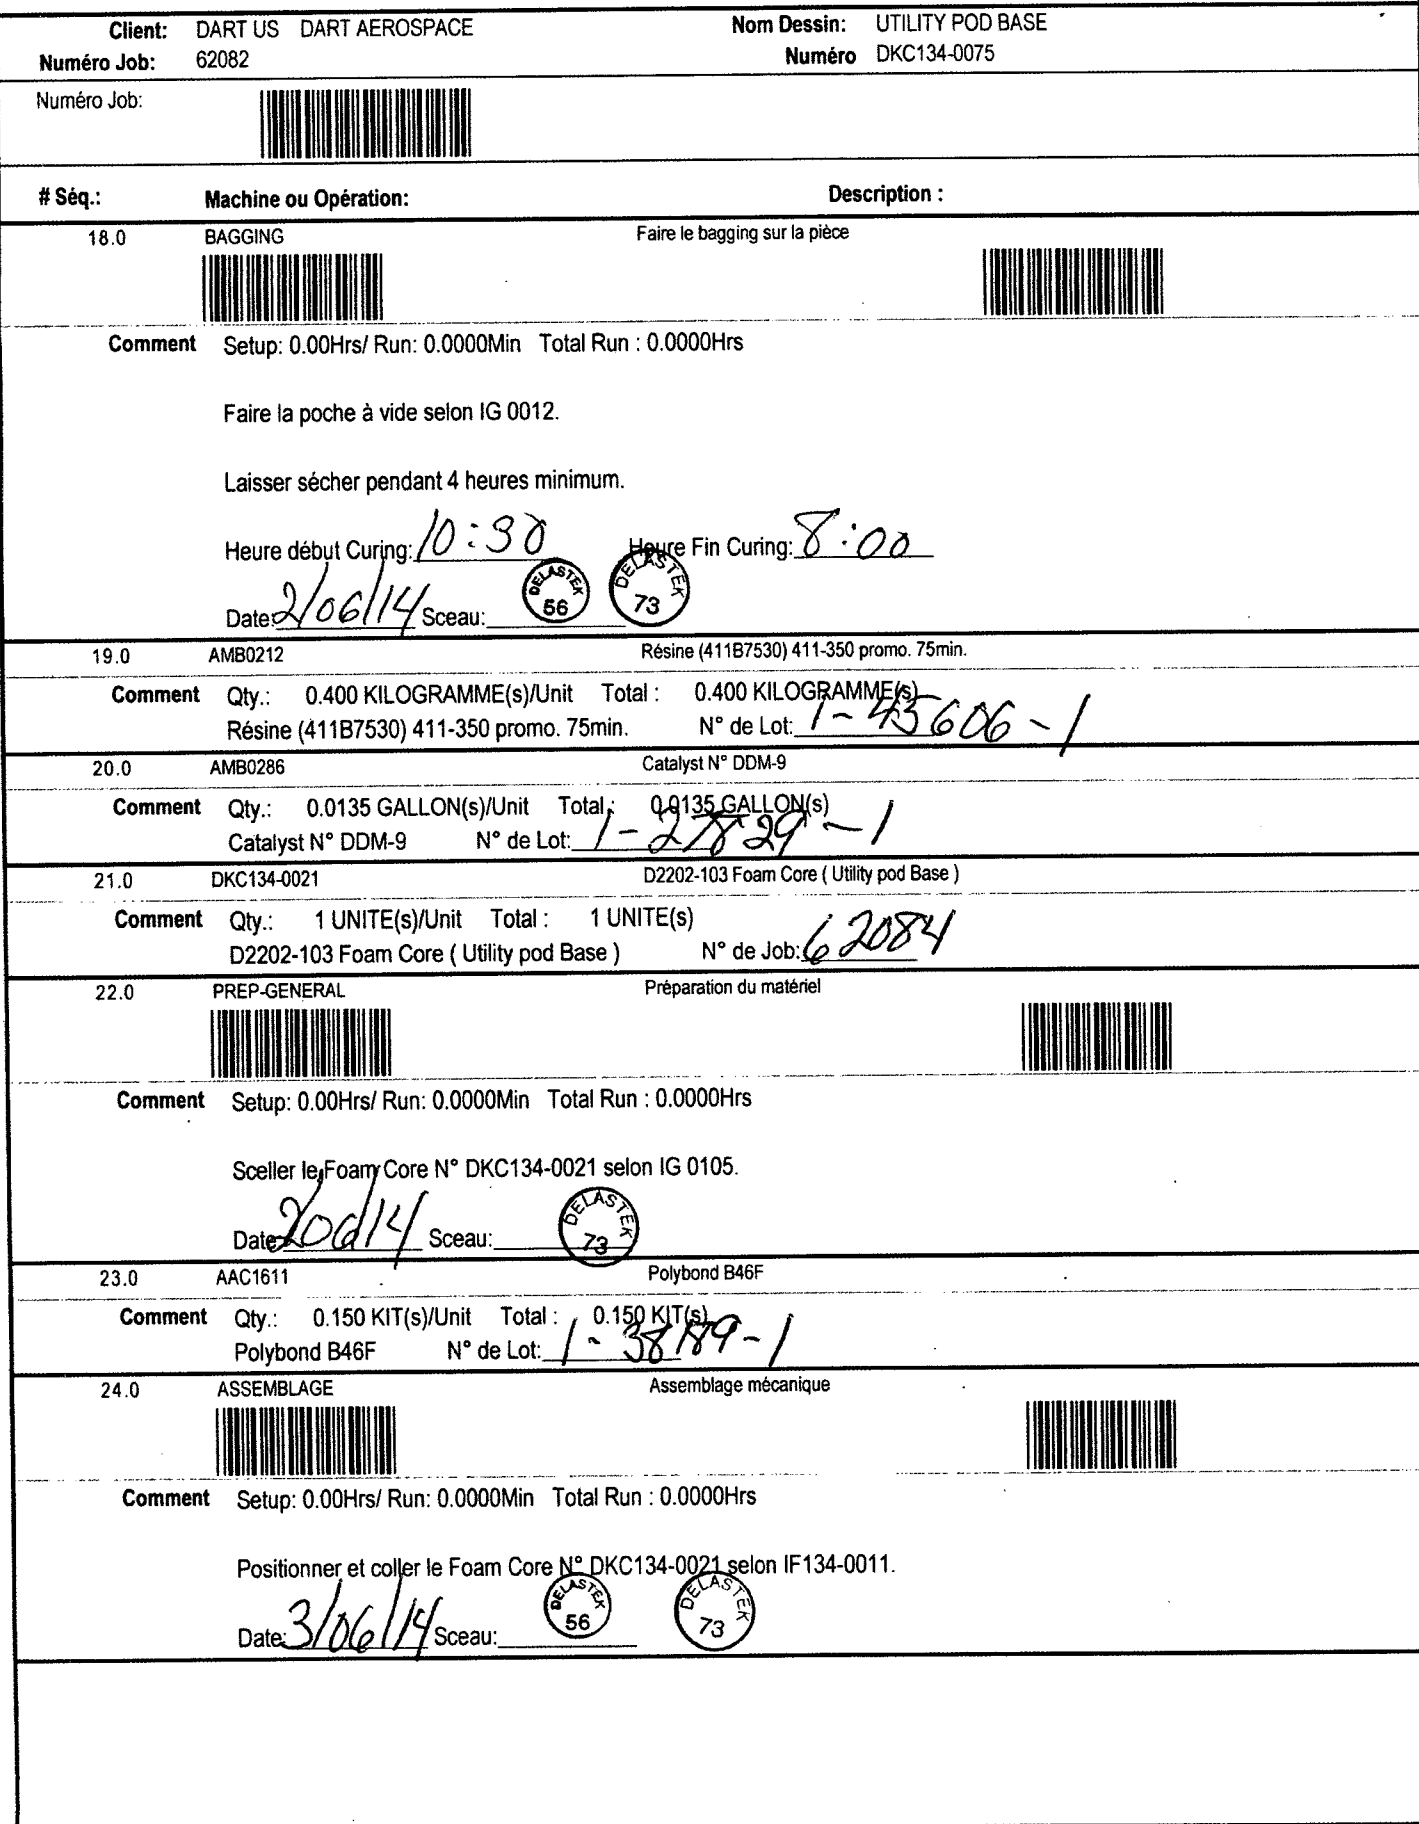 Client: DART US DART AEROSPACE Nom Dessin: UTILITY POD BASE
Numéro Job: 62082 Numéro DKC134-0075
Numéro Job:
# Séq.: Machine ou Opération: Description :
18.0 BAGGING Faire le bagging sur la pièce
Comment Setup: 0.00Hrs/ Run: 0.0000Min Total Run : 0.0000Hrs
Faire la poche à vide selon IG 0012.
Laisser sécher pendant 4 heures minimum.
Heure début Curing: 10:30 Heure Fin Curing: 8:00
Date: 2/06/14 Sceau: DELASTEK 56 DELASTEK 73
19.0 AMB0212 Résine (411B7530) 411-350 promo. 75min.
Comment Qty.: 0.400 KILOGRAMME(s)/Unit Total : 0.400 KILOGRAMME(s)
Résine (411B7530) 411-350 promo. 75min. N° de Lot: 1-45606-1
20.0 AMB0286 Catalyst N° DDM-9
Comment Qty.: 0.0135 GALLON(s)/Unit Total : 0.0135 GALLON(s)
Catalyst N° DDM-9 N° de Lot:
21.0 DKC134-0021 D2202-103 Foam Core ( Utility pod Base )
Comment Qty.: 1 UNITE(s)/Unit Total : 1 UNITE(s)
D2202-103 Foam Core ( Utility pod Base ) N° de Job: 62084
22.0 PREP-GENERAL Préparation du matériel
Comment Setup: 0.00Hrs/ Run: 0.0000Min Total Run : 0.0000Hrs
Sceller le Foam Core N° DKC134-0021 selon IG 0105.
Date: Sceau: DELASTEK 73
23.0 AAC1611 Polybond B46F
Comment Qty.: 0.150 KIT(s)/Unit Total : 0.150 KIT(s)
Polybond B46F N° de Lot: 1-38189-1
24.0 ASSEMBLAGE Assemblage mécanique
Comment Setup: 0.00Hrs/ Run: 0.0000Min Total Run : 0.0000Hrs
Positionner et coller le Foam Core N° DKC134-0021 selon IF134-0011.
Date: 3/06/14 Sceau: DELASTEK 56 DELASTEK 73